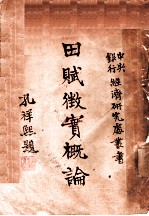 中央
銀行
經濟研究處叢書
田賦徵實概論
孔祥熙題